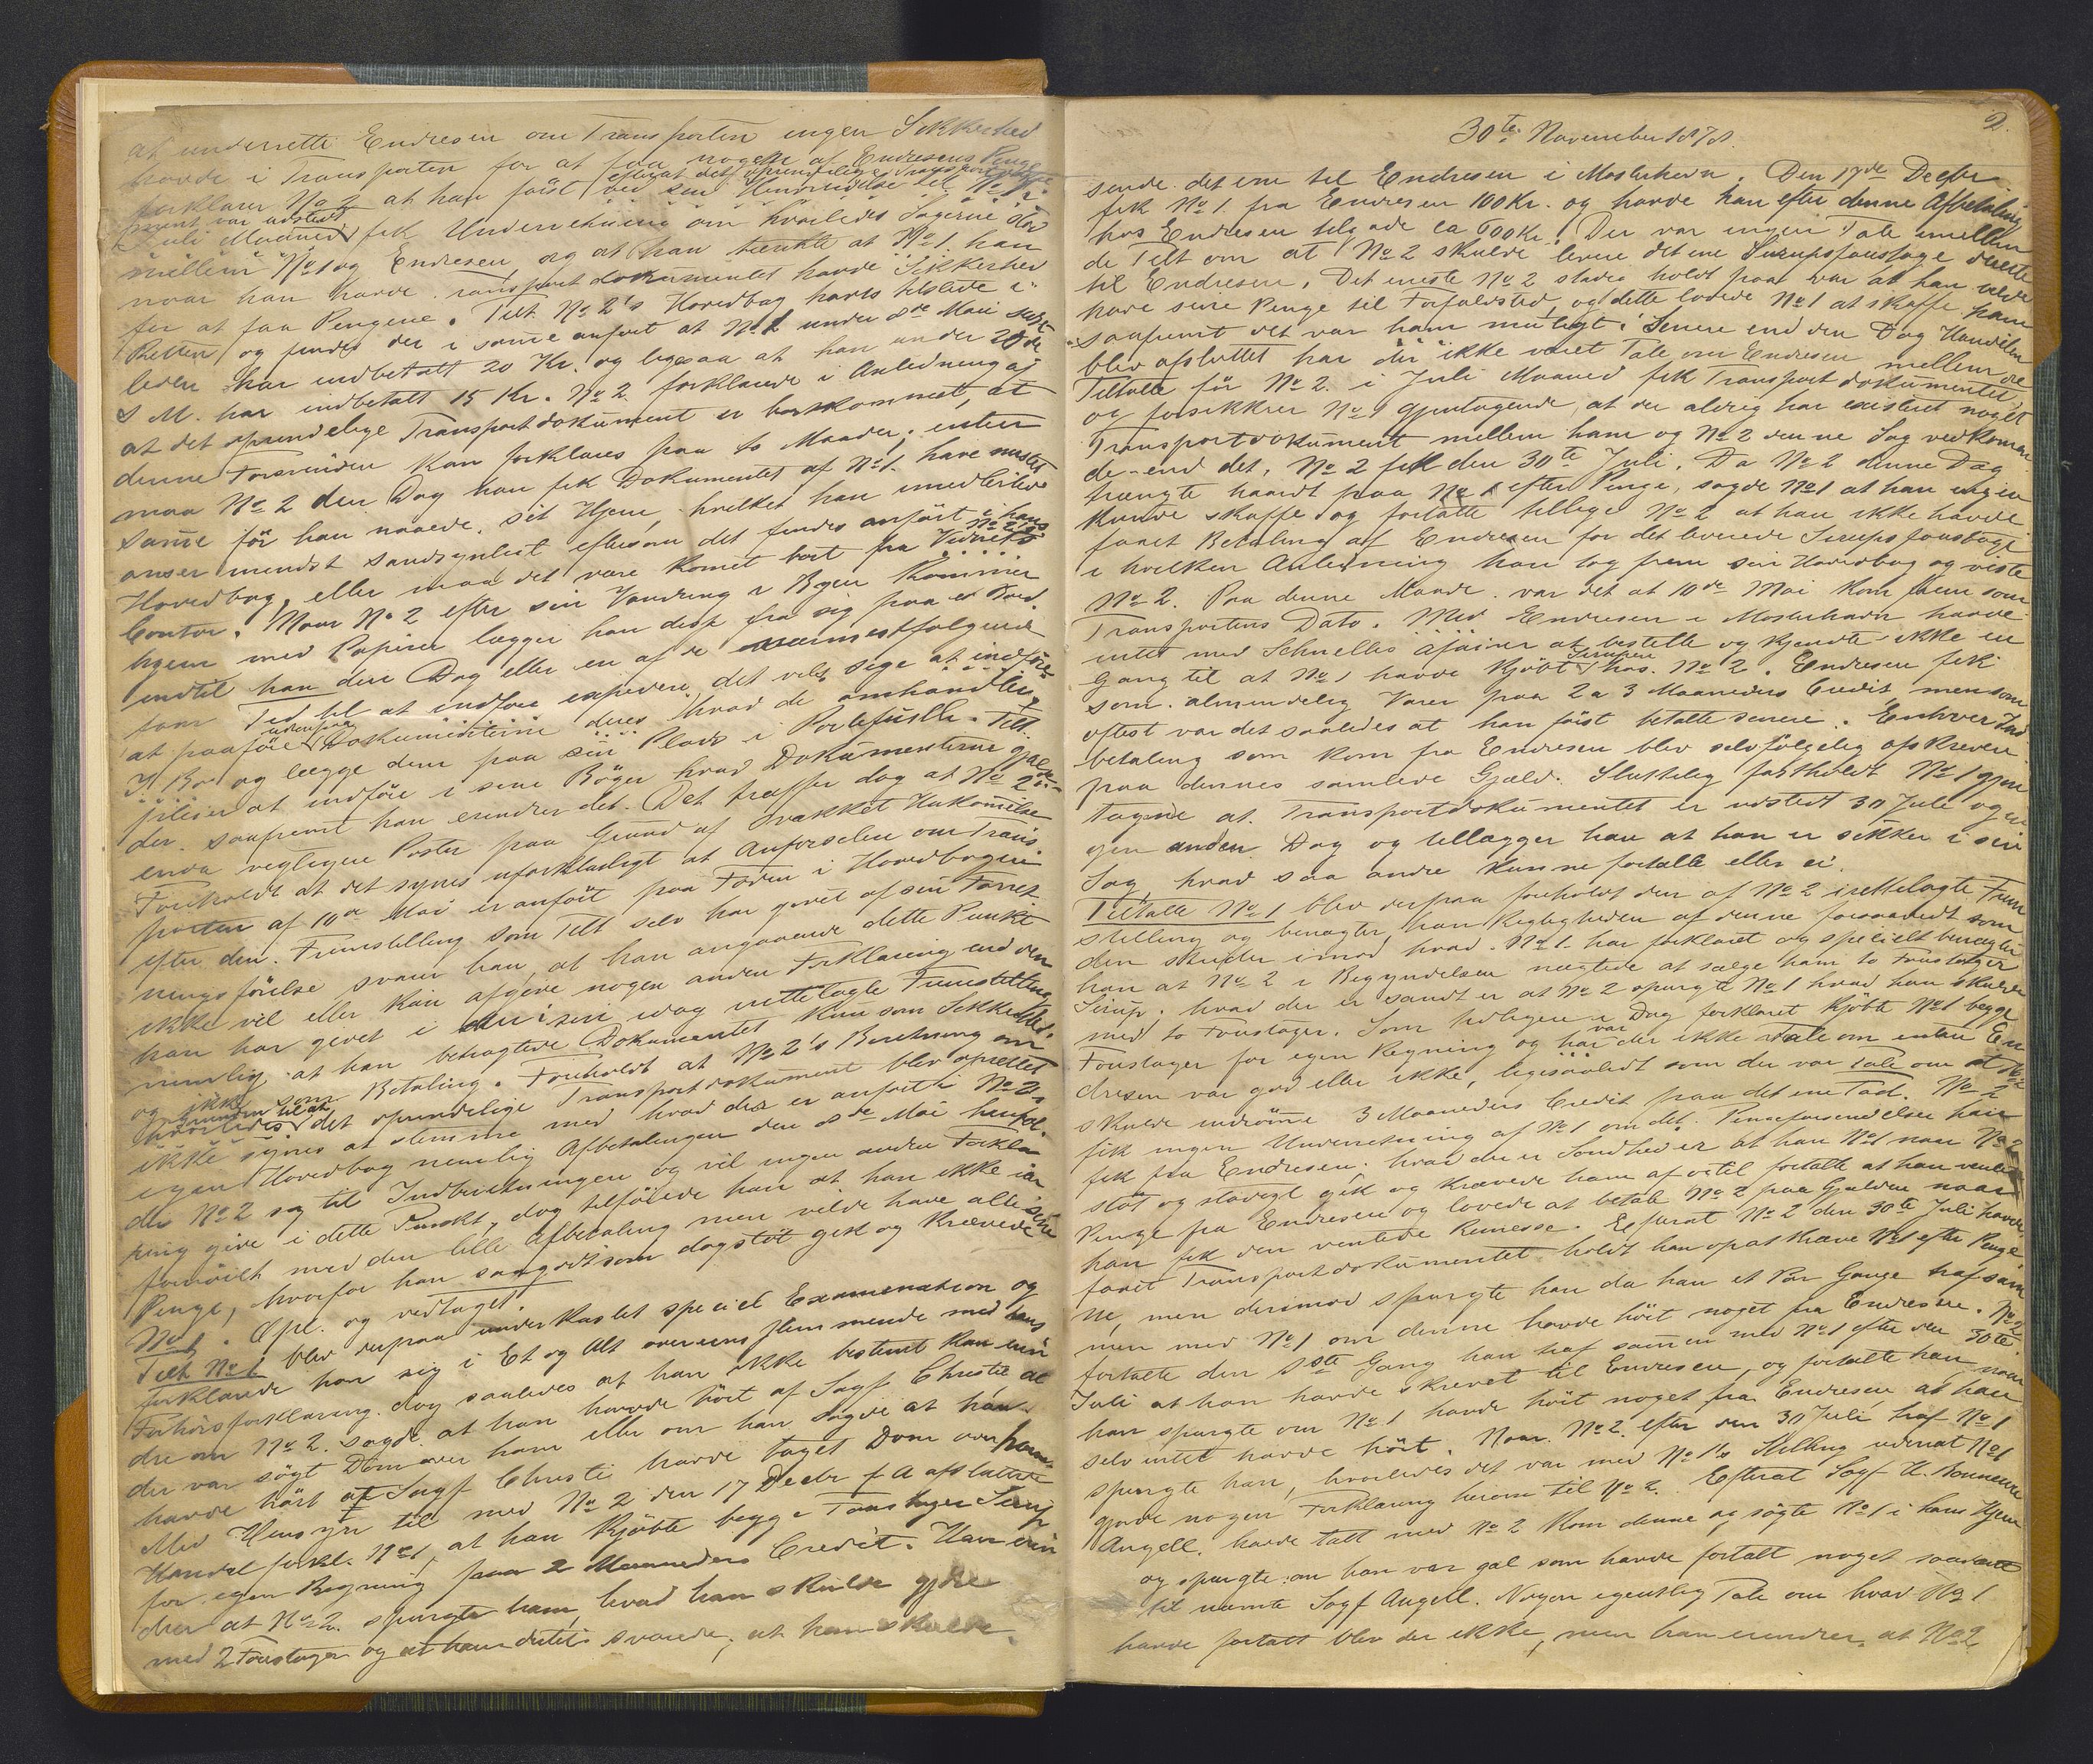 at underrette Endresen om Transporten ingen Sikkerhed
havde i Transporten for at faa noget af Endresens Penge
forklarer No 2 at han først ved sin Henvendelse til No 1 i
efterat det oprindelige Transportdoku
ment var udstedt
Juli Maaned fik Underretning om hvorledes Sagerne stod
mellem No 1 og Endresen og at han tænkte at No 1 han
naar han havde Transportdokumentet havde Sikkerhed
for at faa Pengene. Tilt. No 2's Hovedbog havdes tilstede i
Retten og fandtes der i samme anført at No 1 under 8de Mai
leden har indbetalt 20 Kr. og ligesaa at han under 28de
s M. har indbetalt 15 Kr. No 2 forklarede i Anledning af
at det oprindelige Transportdokument er bortkommet, at
denne Forsvinden kan forklares paa to Maader; enten
maa No 2 den Dag han fik Dokumentet af No 1 have mistet
samme før han naaede sit Hjem, hvilket han imidlertid
anser mindst sandsynligt eftersom det findes anført i hans
Hovedbog, eller maa det være kommet bort fra No 2's
Contor. Naar No 2 efter sin Vandring i Byen kommer
hjem med Papirer lægger han disse fra sig paa et Bord
indtil han den Dag eller en af de nærmestfølgende
faar Tid til at indføre expedere det vil sige at indføre
at paaføre udenpaa Dokumenterne deres hvad de omhandler
og lægge dem paa sin Plads i Portefuille. Tilt.
pleier at indføre i sine Bøger hvad Dokumenterne gjæl
der saafremt han erindrer det. Det træffer dog at No 2
enda vegligere Poster paa Grund af svækket Hukommelse
Foreholdt at det synes uforklarligt at Anførselen om Trans
porten af 10de Mai er anført paa Foden i Hovedbogen
efter den Fremstilling som Tilt selv har givet af sin Forret
ningsførelse svarer han, at han angaaende dette Punkt
ikke vil eller kan afgive nogen anden Forklaring end den
han har givet i sin idag irettelagte Fremstilling
nemlig at han betragtede Dokumentet kun som Sikkerhed
og ikke som Betaling. Foreholdt at No 2's Beretning om
hvorledes det oprindelige Transportdokument blev oprettet
ikke synes at stemme med hvad der er anført i No 2's
egen Hovedbog nemlig Afbetalingen den 8de Mai henhol
der No 2 sig til Indberetningen og vil ingen anden Forkla
ring give i dette Punkt, dog tilføiede han at han ikke var
fornøiet med den lille Afbetaling men vilde have alle sine
Penge, hvorfor han saagodtsom dagstøt gik og krævede
No 1. Opl. og vedtaget.
Tilt No 1 blev derpaa underkastet speciel Examination og
forklarede han sig i Et og Alt overensstemmende med hans
Forhørsforklaring dog saaledes at han ikke bestemt kan erin
dre om No 2 sagde at han havde hørt af Sagf. Christie at
der var søgt Dom over ham eller om han sagde at han
havde hørt at Sagf Christie havde taget Dom over ham
Med Hensyn til med No 2 den 17 Decbr f A afsluttede
Handel forkl. No 1, at han kjøbte begge Fourtager Sirup
for egen Regning paa 2 Maaneders Credit. Han erin
drer at No 2 spurgte ham, hvad han skulde gjøre
med 2 Foustager og at han dertil svarede, at han skulde
2.
30te November 1878.
sende det ene til Endresen i Mosterhavn. Den 17de Decbr
fik No 1 fra Endresen 100 Kr. og havde han efter denne Afbetaling
hos Endresen tilgode ca 600 Kr. Der var ingen Tale imellem
de Tilt om at No 2 skulde levere det ene Sirupsfoustage direkte
til Endresen. Det eneste No 2 stadig holdt paa var at han vilde
have sine Penge til Forfaldstid, og dette lovede No 1 at skaffe ham
saafremt det var ham muligt. Senere end den Dag Handelen
blev afsluttet har der ikke været Tale om Endresen mellem de
Tiltalte før No 2 i Juli Maaned fik Transportdokumentet,
og forsikkrer No 1 gjentagende, at der aldrig har existeret noget
Transportdokument mellem ham og No 2 denne Sag vedkommen
de end det, No 2 fik den 30te Juli. Da No 2 denne Dag
trængte haardt paa No 1 efter Penge, sagde No 1 at han ingen
kunde skaffe og fortalte tillige No 2 at han ikke havde
faaet Betaling af Endresen for det leverede Sirupsfoustage
i hvilken Anledning han tog frem sin Hovedbog og viste
No 2. Paa denne Maade var det at 10de Mai kom frem som
Transportens Dato. Med Endresen i Mosterhavn havde
intet med Schnelles Afairer at bestille og kjendte ikke en
Gang til at No 1 havde kjøbt Sirupen hos No 2. Endresen fik
som almindelig Varer paa 2 a 3 Maaneders Credit, men som
oftest var det saaledes at han først betalte senere. Enhver Ind
betaling som kom fra Endresen blev selvfølgelig afskreven
paa dennes samlede Gjæld. Sluttelig fastholdt No 1 gjen
tagende at Transportdokumentet er udstedt 30 Juli og in
gen anden Dag og tillægger han at han er sikker i sin
Sag, hvad saa andre kunne fortælle eller ei.
Tiltalte No 1 blev derpaa foreholdt den af No 2 irettelagte Frem
stilling og benegter han Rigtigheden af denne forsaavidt som
den strider imod hvad No 1 har forklaret og specielt benegter
han at No 2 i Begyndelsen negtede at sælge ham to Foustager
Sirup, hvad der er sandt er at No 2 spurgte No 1 hvad han skulde
med to Foustager. Som tidligere i Dag forklaret kjøbte No 1 begge
Foustager for egen Regning og var der ikke Tale om enten En
dresen var god eller ikke, ligesaalidt som der var Tale om at No 2
skulde indrømme 3 Maaneders Credit paa det ene Fad. No 2
fik ingen Underretning af No 1 om de Pengeforsendelser han
fik fra Endresen; hvad der er Sandhed er at han No 1 naar No 2
støt og stadigt gik og krævede ham af og til fortalte at han ventede
Penge fra Endresen og lovede at betale No 2 paa Gjælden naar
han fik den ventede Remesse. Efterat No 2 den 30te Juli havde
faaet Transportdokumentet holdt han op at kræve No 1 efter Penge
ne, men derimod spurgte han da han et Par Gange traf sam
men med No 1 om denne havde hørt noget fra Endresen. No 1
fortalte den 1ste Gang han traf sammen med No 1 efter den 30te
Juli at han havde skrevet til Endresen, og fortalte han naar
han spurgte om No 1 havde hørt noget fra Endresen, at han
selv intet havde hørt. Naar No 2 efter den 30 Juli traf No 1
spurgte han, hvorledes det var med No 1's Stilling uden at No 1
gjorde nogen Forklaring herom til No 2. Efterat Sagf
Angell havde talt med No 2 kom denne og søgte No 1 i hans Hjem
og spurgte om han var gal som havde fortalt noget saadant
til nævnte Sagf Angell. Nogen egentlig Tale om hvad No 1
havde fortalt blev der ikke, men han erindrer at No 2